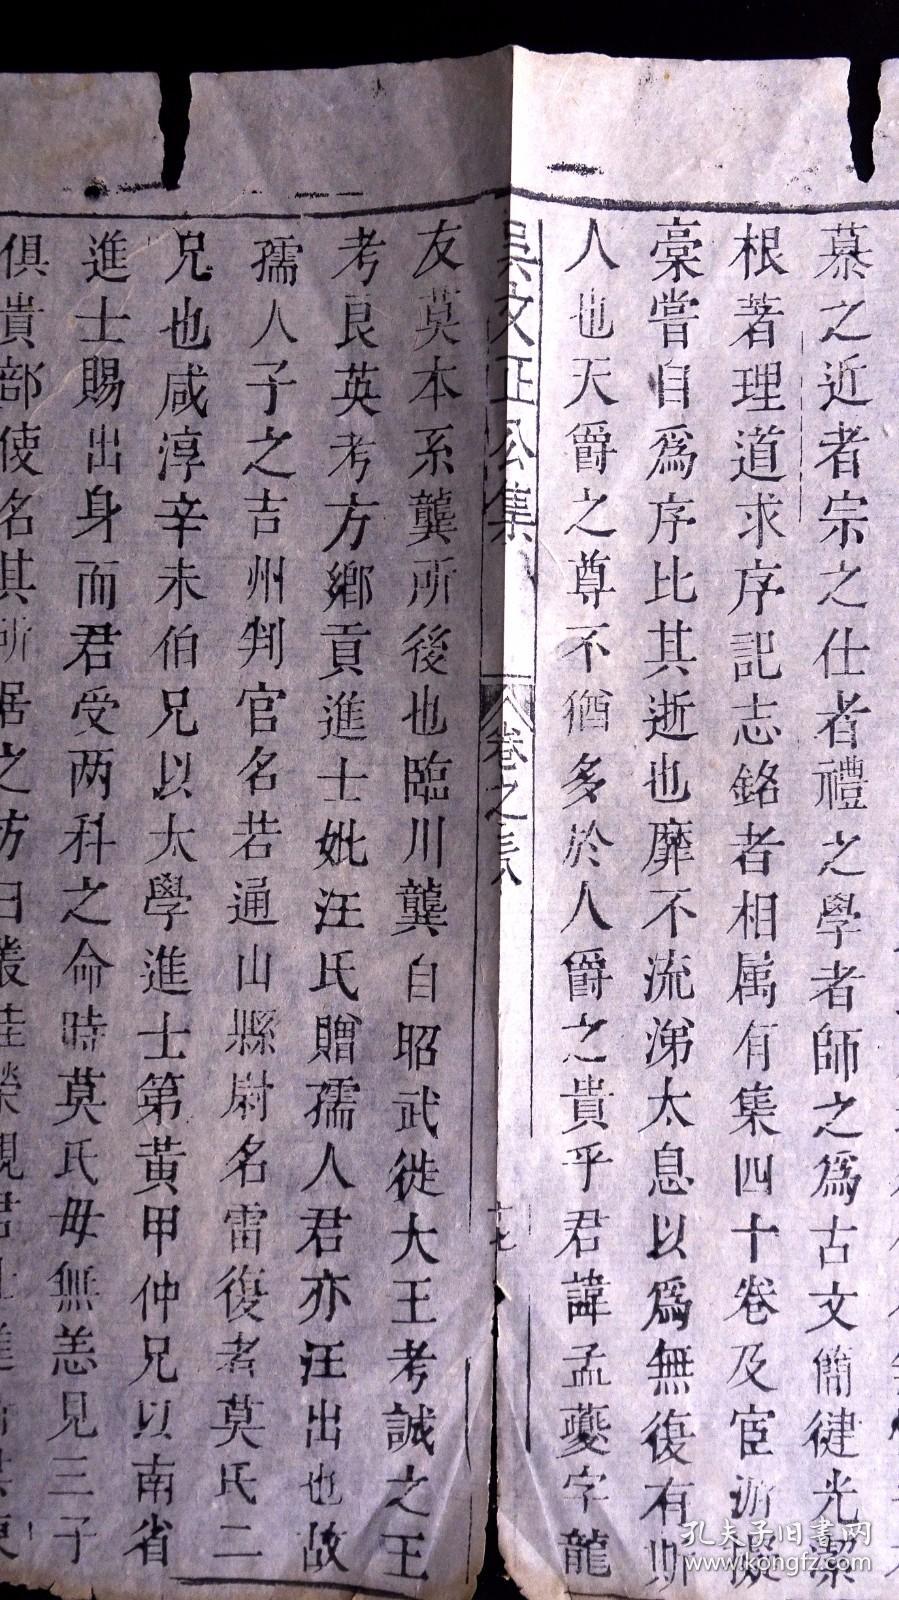 慕之近者宗之仕者禮之學者師之爲古文簡健光潔
根著理道求序記志銘者相属有集四十卷及宦游擬
稾嘗自爲序比其逝也靡不流涕太息以爲無復有斯
人也天爵之尊不猶多於人爵之貴乎君諱孟夔字龍
吳文正公集
卷之三八
十七
友莫本系龔所後也臨川龔自昭武徙大王考誠之王
考良英考方鄉貢進士妣汪氏贈孺人君亦汪出也故
孺人子之吉州判官名若通山縣尉名雷復者莫氏二
兄也咸淳辛未伯兄以太學進士第黃甲仲兄以南省
進士賜出身而君受两科之命時莫氏毋無恙見三子
俱貴部使名其所居之坊曰叢桂榮親君
孔夫子旧書网
www.kongfz.com